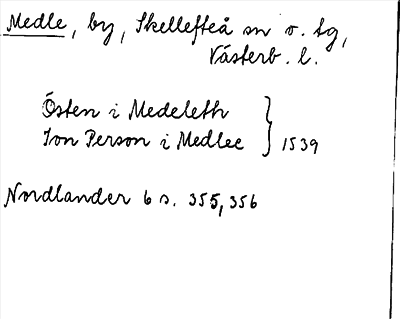 Medle, by, Skellefteå sn o. tg,
Västerb. l.
Östen i Medeleth
Jon Person i Medlee } 1539
Nordlander 6 s. 355, 356